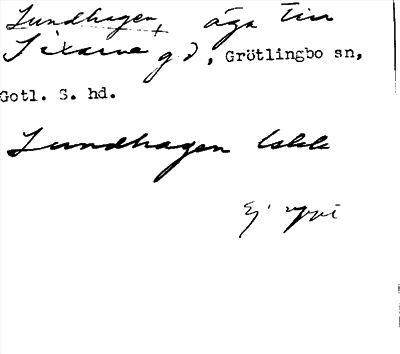 Lundhagen, äga till
Sixarve gd, Grötlingbo sn,
Gotl. S. hd.
Lundhagen
Ej uppt